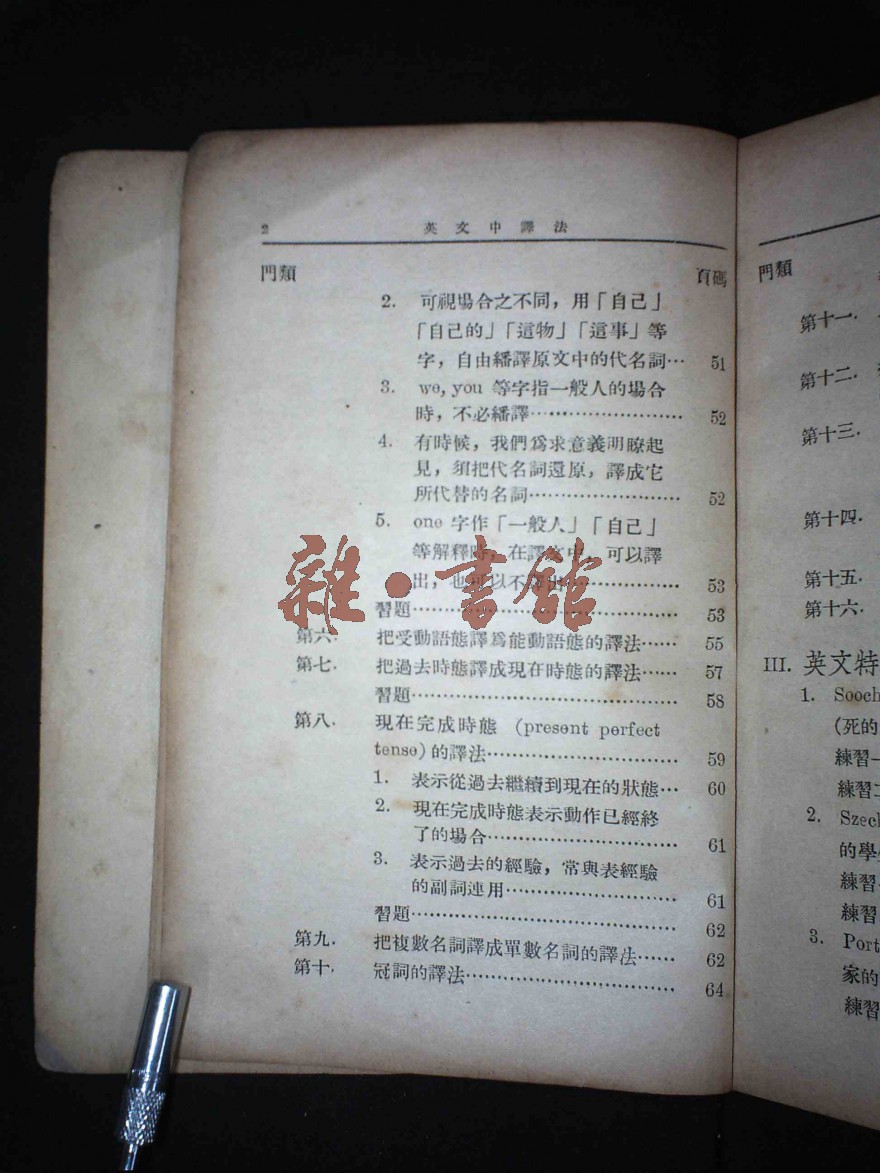 2 英文中譯法
門類 頁碼
2. 可視場合之不同，用「自己」
「自己的」「這物」「這事」等
字，自由繙譯原文中的代名詞… 51
3. we, you 等字指一般人的場合
時，不必繙譯………………… 52
4. 有時候，我們爲求意義明瞭起
見，須把代名詞還原，譯成它
所代替的名詞………………… 52
5. one 字作「一般人」「自己」
等解釋時，在譯文中，可以譯
出，也可以不譯出…………… 53
習題…………………………… 53
第六. 把受動語態譯爲能動語態的譯法…… 55
第七. 把過去時態譯成現在時態的譯法…… 57
習題…………………………… 58
第八. 現在完成時態 (present perfect
tense) 的譯法…………………… 59
1. 表示從過去繼續到現在的狀態… 60
2. 現在完成時態表示動作已經終
了的場合……………………… 61
3. 表示過去的經驗，常與表經驗
的副詞連用…………………… 61
習題…………………………… 62
第九. 把複數名詞譯成單數名詞的譯法…… 62
第十. 冠詞的譯法……………………… 64
雜·書館
門類
第十一.
第十二.
第十三.
第十四.
第十五.
第十六.
III. 英文特
1. Sooch
(死的
練習一
練習二
2. Szech
的學
練習
練習
3. Port
家的
練習